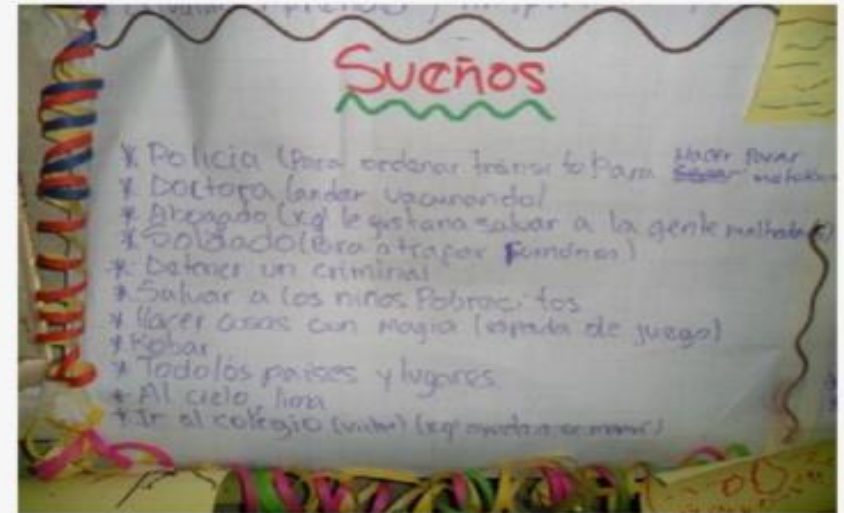 Sueños
* Policia (Para ordenar transito Para Hacer Parar
* Doctora (andar vacunando)
* Abogado (xq' le gustaria salvar a la gente
* Soldado (Para atrapar
* Detener un criminal
* Salvar a los niños Pobrecitos
* Hacer cosas con magia (espada de juego)
* Robar
* Todo los paises y lugares
* Al cielo,
* Ir al colegio (xq'